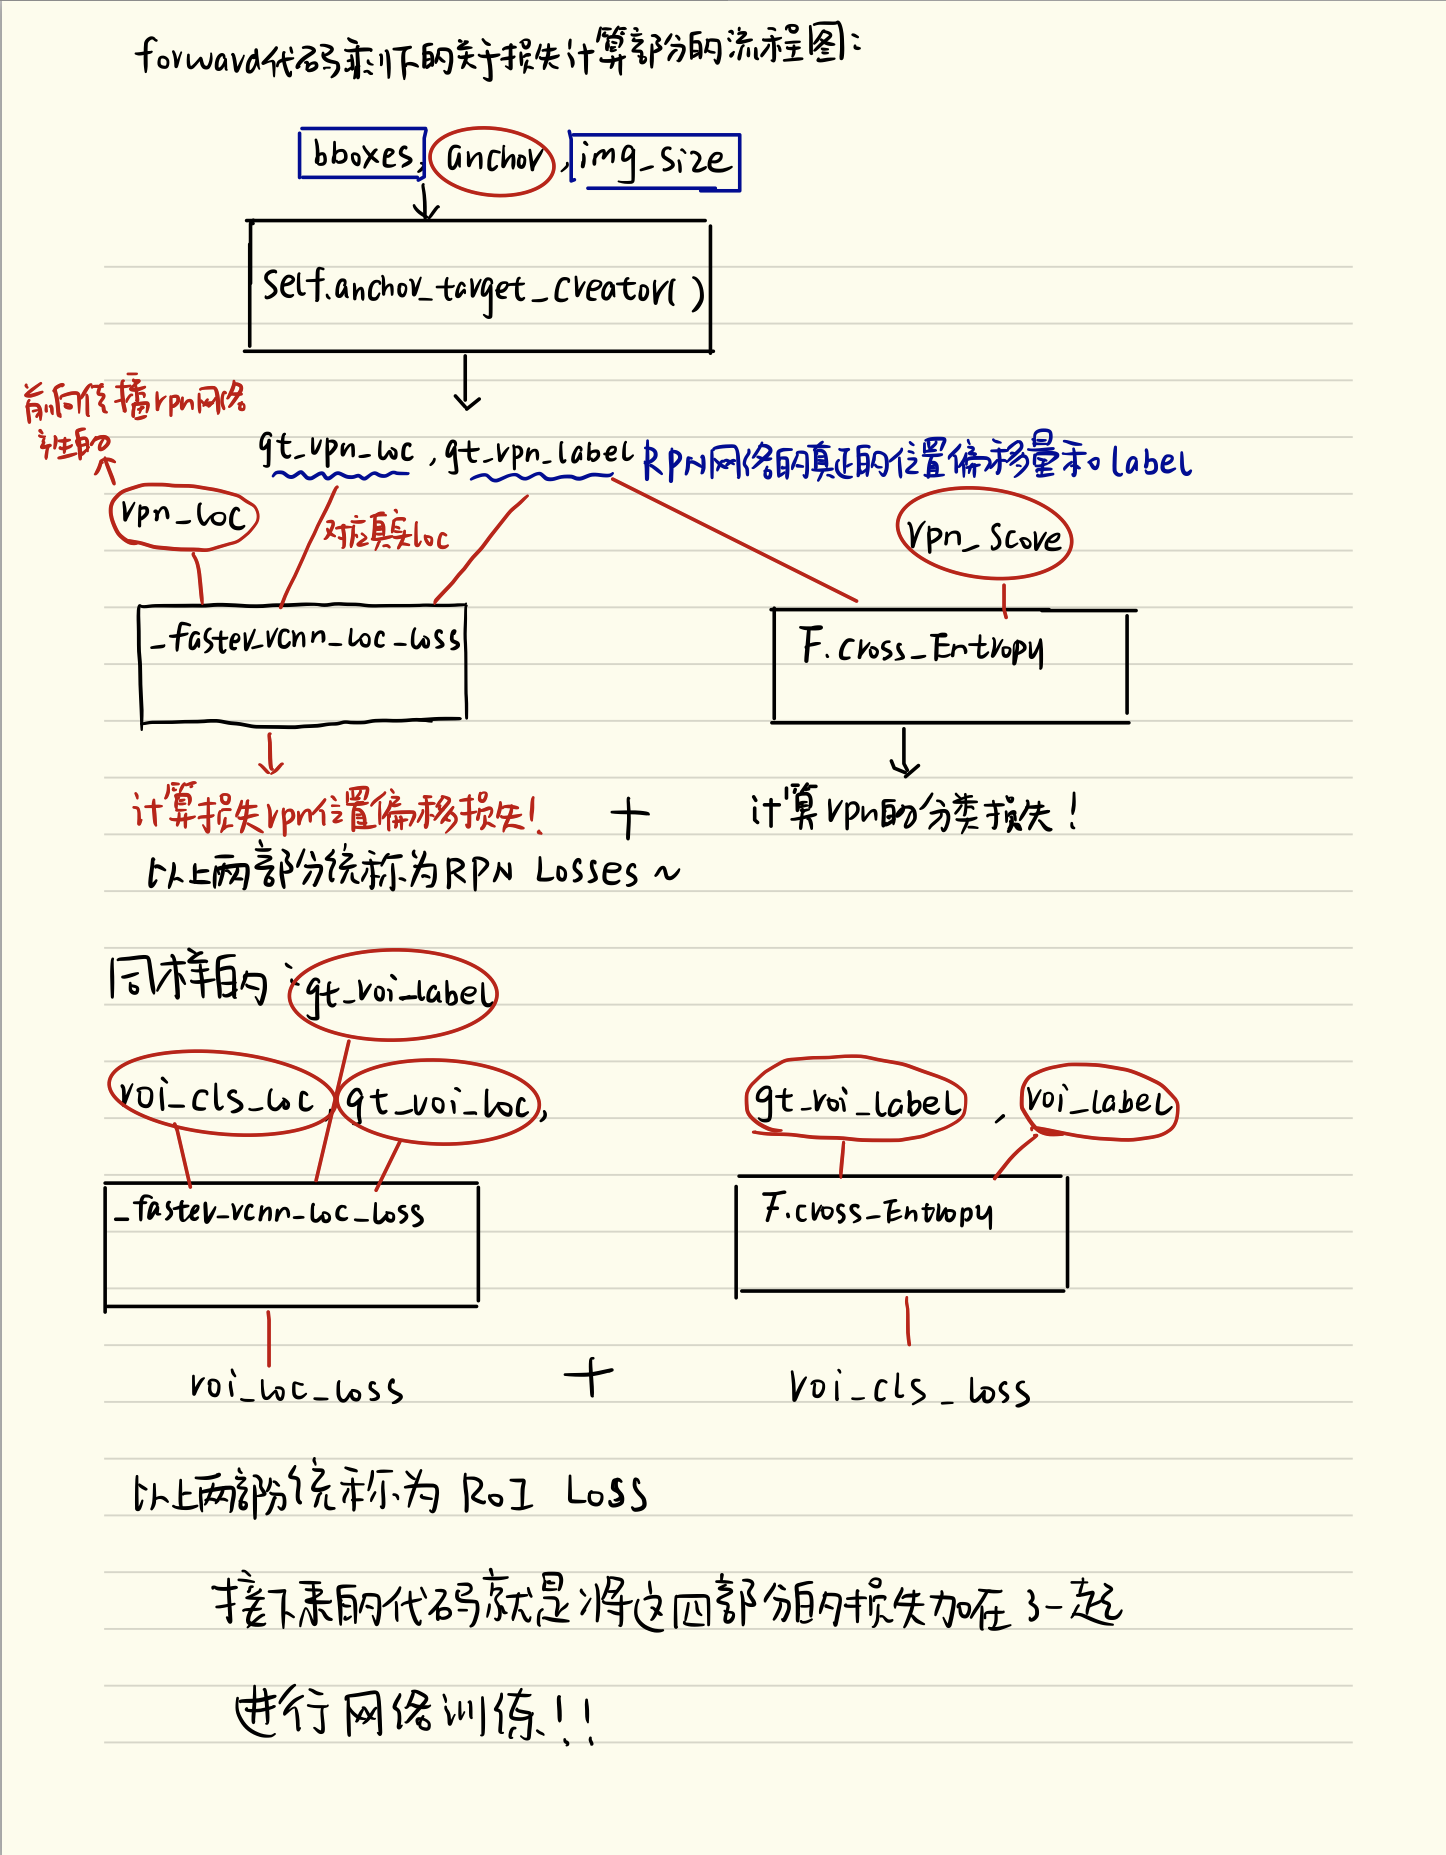 forward代码剩下的关于损失计算部份的流程图:
bboxes, anchor, img_size
self.anchor_target_creator()
前向传播rpn网络
产生的
gt_rpn_loc, gt_rpn_label RPN网络的真正的位置偏移量和label
rpn_loc 对应真实loc rpn_score
_faster_rcnn_loc_loss F.cross_Entropy
计算损失rpn位置偏移损失! + 计算rpn的分类损失!
以上两部份统称为RPN Losses ~
同样的: gt_roi_label
roi_cls_loc, gt_roi_loc, gt_roi_label, roi_label
_faster_rcnn_loc_loss F.cross_Entropy
roi_loc_loss + roi_cls_loss
以上两部份统称为 RoI Loss
接下来的代码就是将这四部分的损失加在了一起
进行网络训练!!